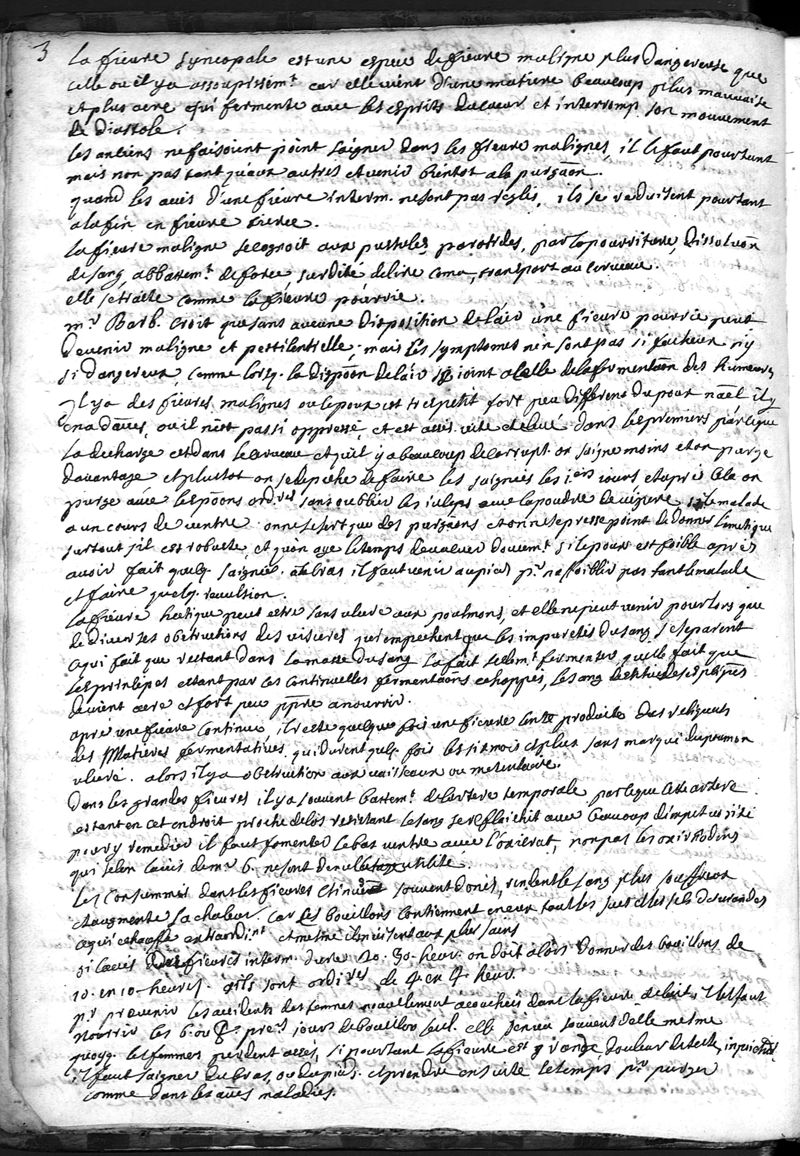 3
La fievre syncopale est une espece de fievre maligne plus dangereuse que
celle ou il y a assoupissemt. car elle vient d'une matiere beaucoup plus mauvaise
et plus acre qui fermente avec les esprits du coeur et interromp son mouvement
de diastole.
les antiens ne faisoient point saigner dans les fievre malignes, il le faut pourtant
mais non pas tant qu'aux autres et venir bientot a la purgaon.
quand les accés d'une fievre interm. ne sont pas reglés, ils se reduisent pourtant
a la fin en fievre tierce.
la fievre maligne se cognoit aux pustules, parotides, par la pourriture, dissolution
de sang, abbattemt. de force, surdité delire coma, transport au cerveau.
elle se traite comme la fievre pourrie.
mr Barb. croit que sans aucune disposition de l'air une fievre pourrie peut
devenir maligne et pestilentielle; mais les symptomes n'en sont pas si facheux ny
si dangereux, comme lorsq. la dispõon de l'air se joint a celle de la fermentãon des humeurs
Il y a des fievres malignes ou le poux est tres petit fort peu different du poux nãel il y
en a d'autres, ou il n'est pas si oppressé, et est assés viste et elevé dans les premiers parceque
la decharge est dans le cerveau et qu'il y a beaucoup de corrupt. on saigne moins et on purge
davantage et plustot on se depeche de faire les saignées les 1.ers jours et apres cela on
purge avec les põons ord.res sans oublier les juleps avec la poudre de vipere si le malade
a un cours de ventre on ne se sert que des purgaons et on ne se presse point de donner l'emetique
surtout s'il est robuste, et qu'on aye le temps d'evacuer doucemt. si le poux est foible apres
avoir fait quelq. saignées au bras il faut venir au pied pr. ne foiblir pas tant le malade
et faire quelq. revulsion.
La fievre hectique peut estre sans ulcere aux poulmons, et elle ne peut venir pour lors que
de diverses obstructions des visceres qui empechent que les impuretés du sang se separent
ce qui fait que restant dans la masse du sang la fait tellemt. fermenter quelle fait que
les principes estant par ces continuelles fermentaons echappés, le sang
devient acre et fort peu ppre a nourrir.
apré une fievre continue, il reste quelque fois une fievre lente produite des reliquats
des matieres fermentatives, qui durent quelq. fois les six mois et plus sans marque du poumon
ulceré. alors il y a obstruction aux vaisseaux ou mesentaire.
Dans les grandes fievres il y a souvent battemt. de l'artere temporale parceque cete artere
estant en cet endroit proche de l'os resistant le sang se reflechit avec beaucoup d'impetuosité
pour y remedier il faut fomenter le bas ventre avec l'oxicrat, non pas les oxirrodins
qui selon l'avis de mr. b. ne sont de nulle utilité.
Les Consummés dans les fievres souvent donés, rendent le sang plus souffreux
et augmente sa chaleur. car les bouillons contiennent en eux toutes les sucs et les sels des viandes
ce qui echauffe extraordint et mesme ils nuisent aux plus sains
si l'accés des fievres interm. dure 20. 30. heur. on doit alors donner des bouillons de
10. en 10. heures. qu'ils sont ordires de 4 en 4 heur.
pr prevenir les accidents des femmes nouvellement acouchées dans la fievre de lait, il les faut
nourrir les 6. ou 7. prers jours de bouillon seul. elle s'en va souvent d'elle mesme
puisq. les femmes perdent assés, si pourtant la fievre est grande, douleur de teste, inquietude
il faut saigner du bras, ou du pied. et prendre ensuite le temps pr purger
comme dans les autres maladies.